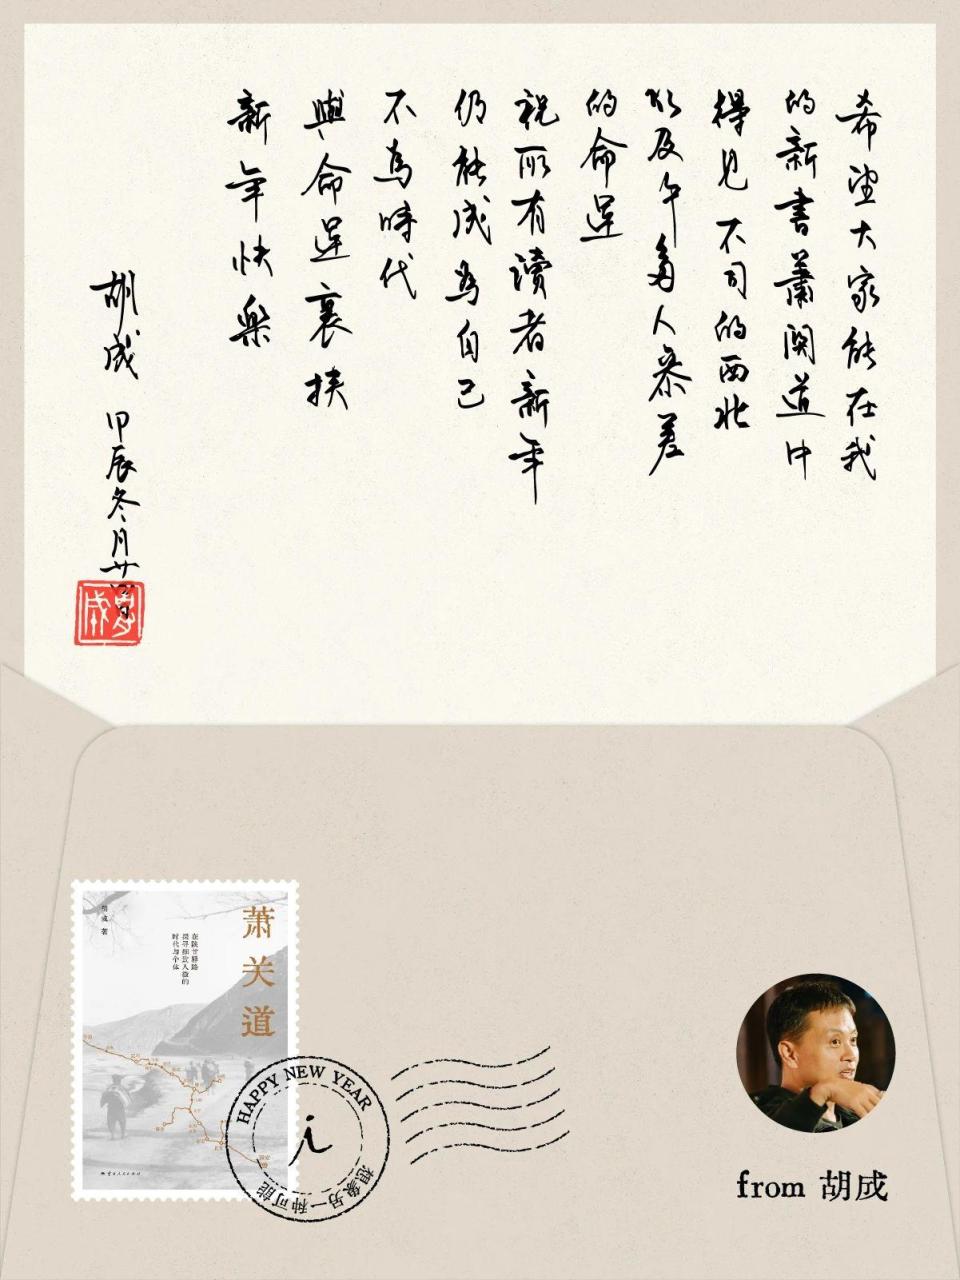 希望大家能在我
的新書蕭関道中
得見不同的西北
以及許多人參差
的命運
祝所有讀者新年
仍能成為自己
不為時代
與命運裹挾
新年快樂
胡成 甲辰冬月廿四日
萧关道
在陕甘驿路
探寻细致入微的
时代与个体
胡成 著
HAPPY NEW YEAR
i
想象另一种可能
from 胡成